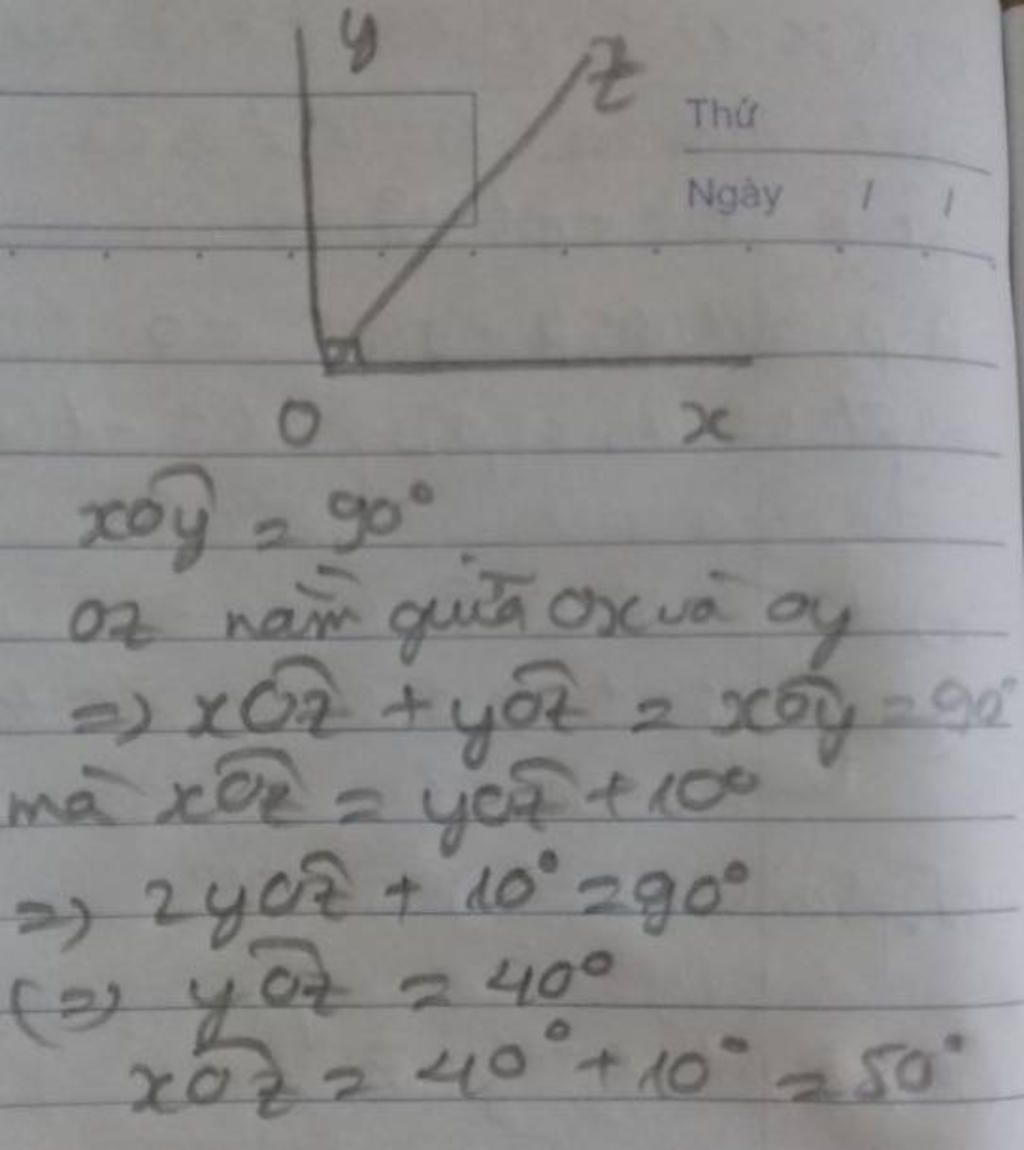 y
z
Thứ
Ngày / /
O x
xôy = 90°
Oz nằm giữa Ox và Oy
=> xÔz + yÔz = xÔy = 90°
mà xÔz = yÔz + 10°
=> 2yÔz + 10° = 90°
(=> yÔz = 40°
xÔz = 40° + 10° = 50°